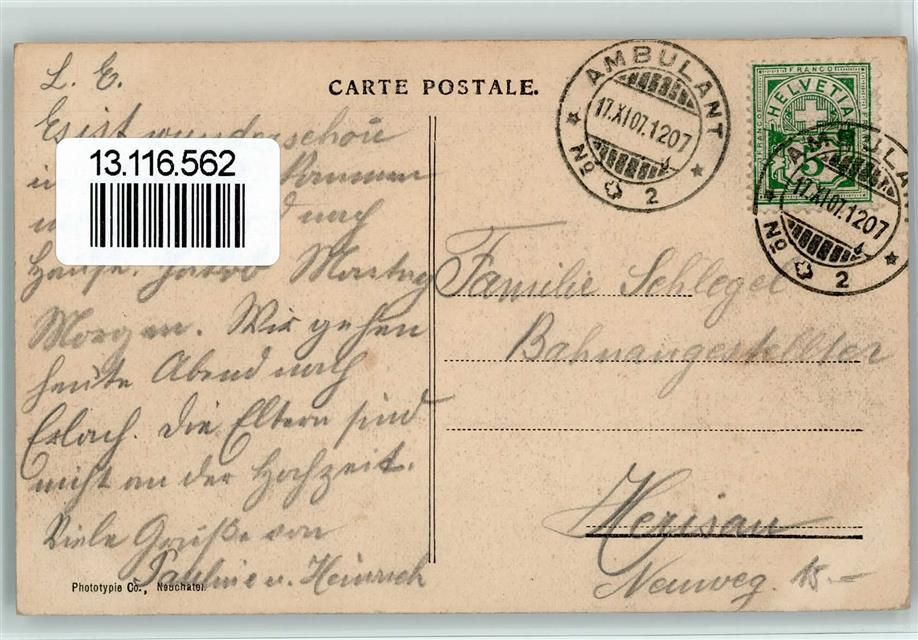 CARTE POSTALE.
L. E.
Es ist wunderschön
Kommen
nach
Hause. Montag
Morgen. Wir gehen
heute Abend nach
Erlach. Die Eltern sind
nicht an der Hochzeit.
Viele Grüße von
Pauline u. Heinrich
Phototypie Co., Neuchatel.
13.116.562
AMBULANT
17.XI.07.1207
No 2
FRANCO
HELVETIA
5
AMBULANT
17.XI.07.1207
No 2
Familie Schlegel
Bahnangestellter
Herisau
Neuweg. 15.–